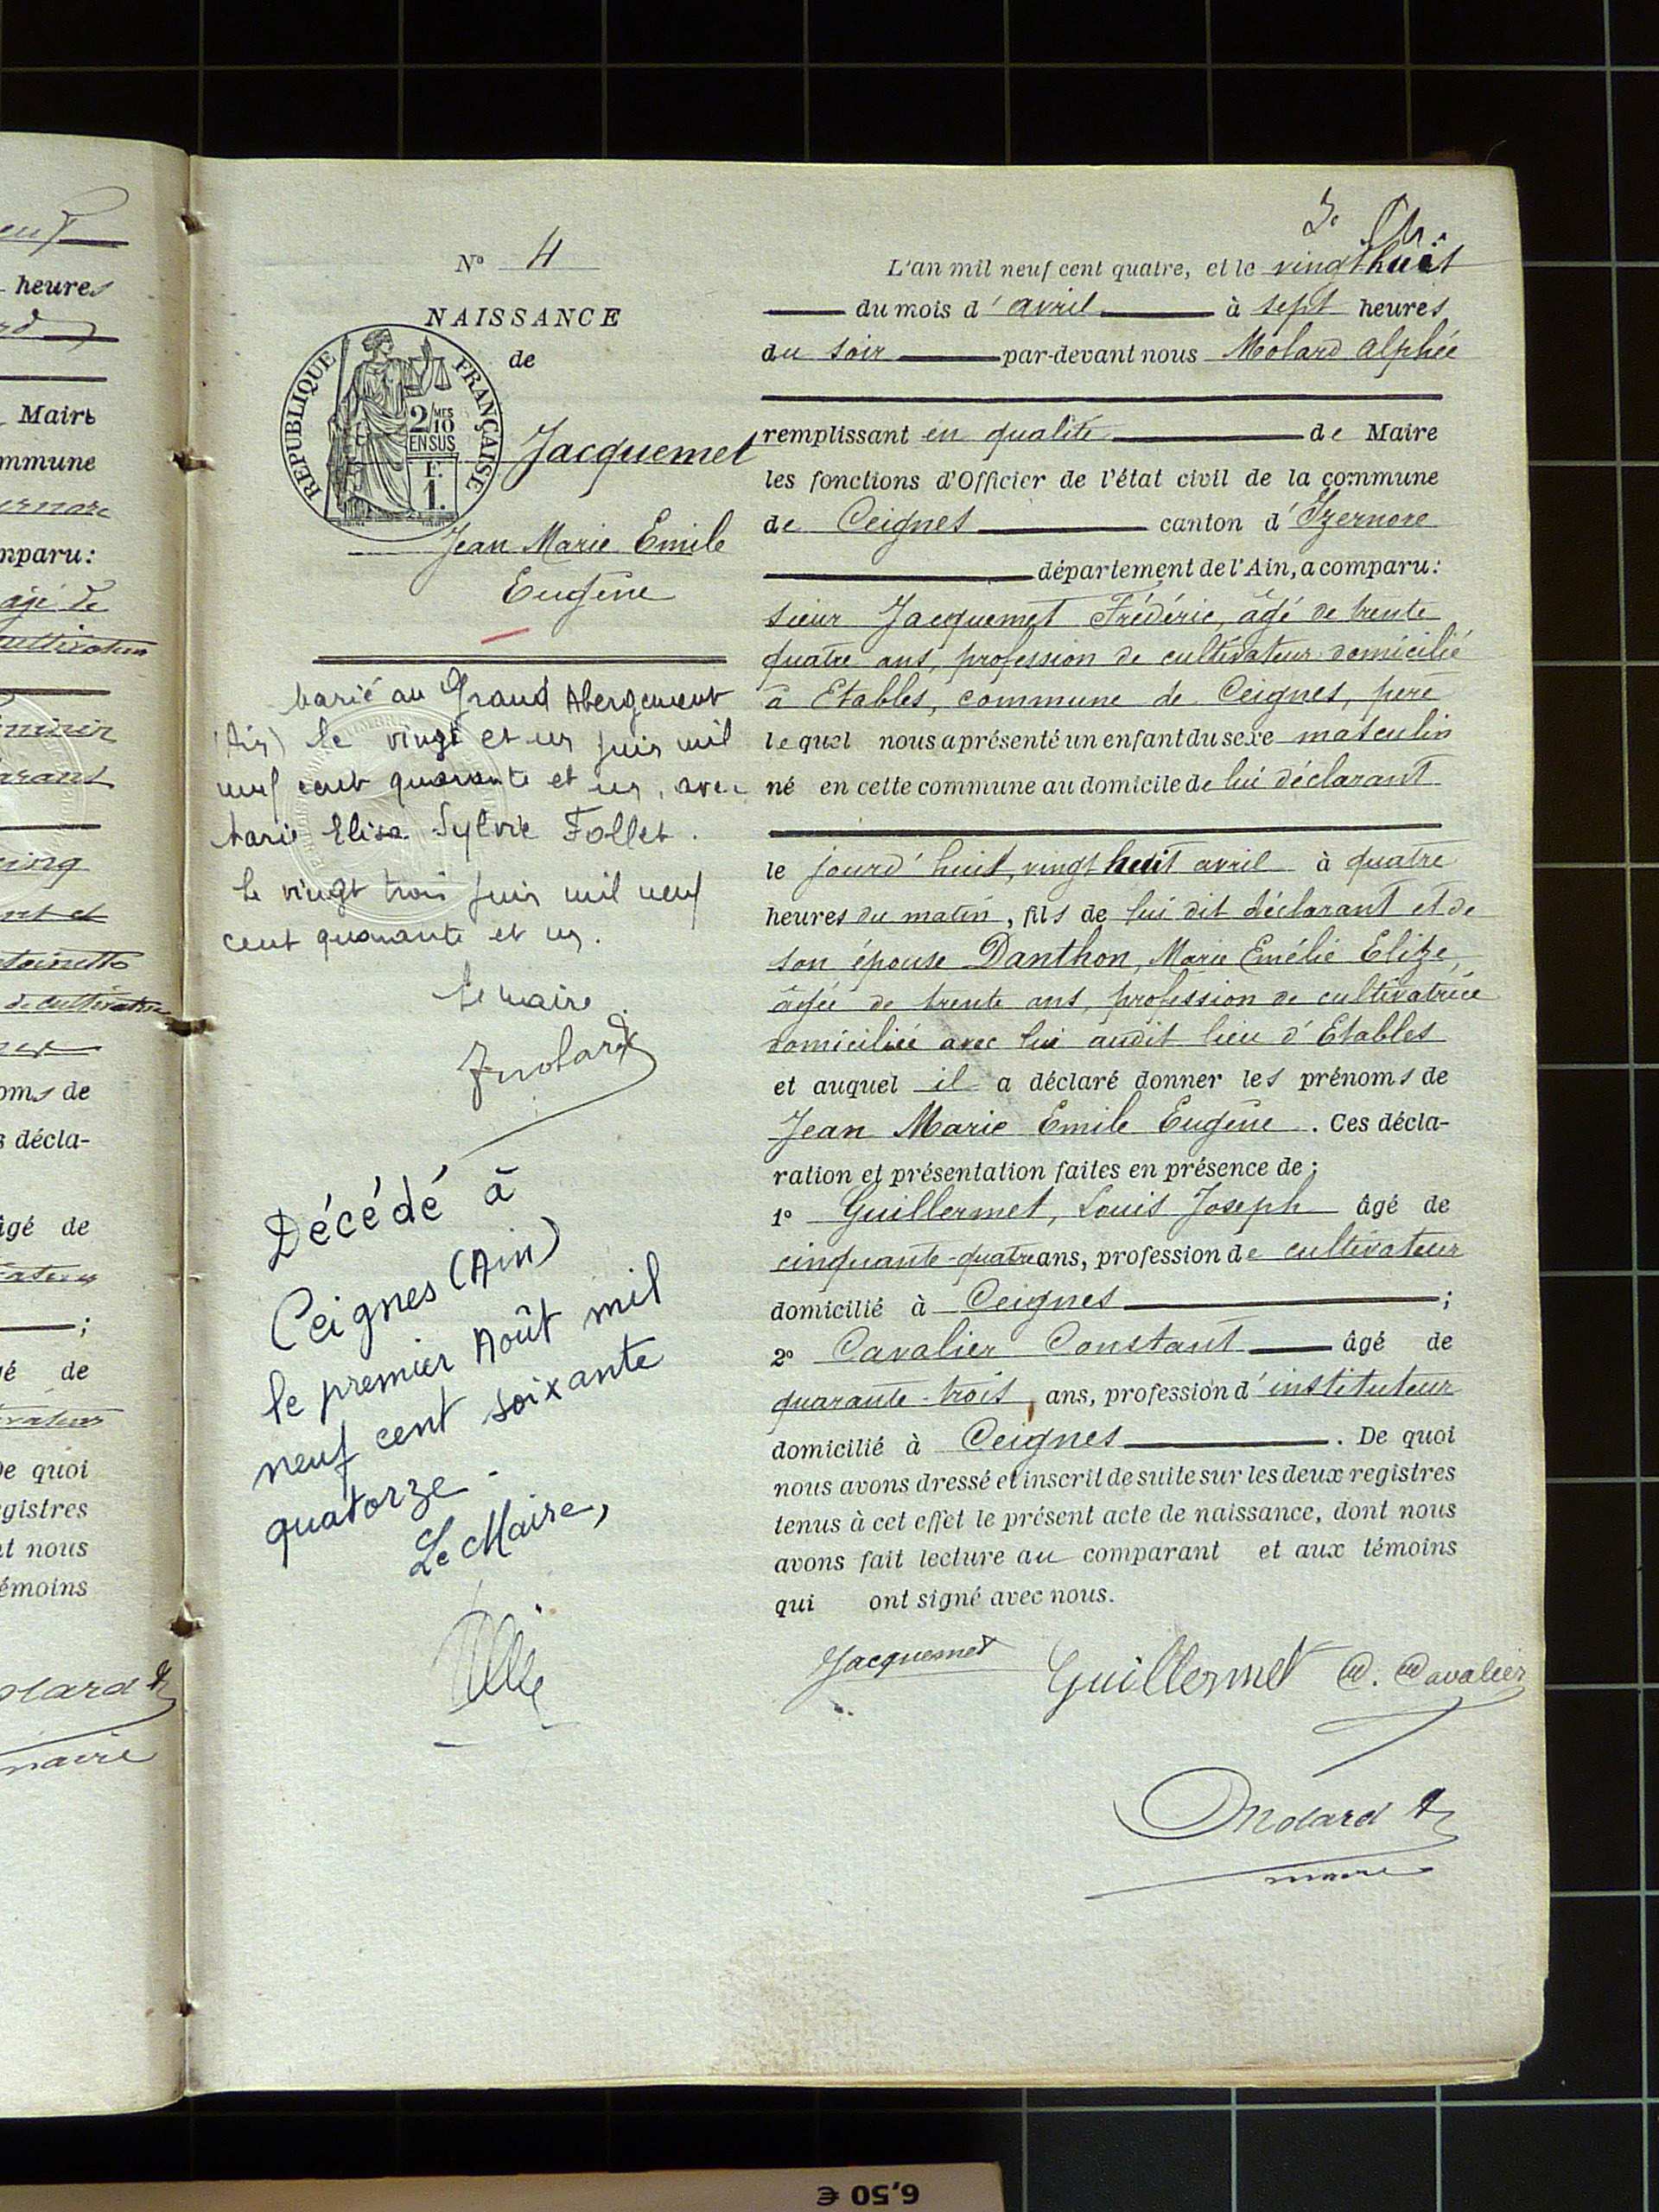 heures
Maire
mmune
ernore
mparu:
âgé de
cultivateur
cinq
de cultivatrice
oms de
s décla-
âgé de
;
é de
De quoi
gistres
nt nous
émoins
olard A
maire
3e
N° 4
NAISSANCE
de
REPUBLIQUE FRANÇAISE
2/10 MES
EN SUS
F.
1.
Jacquemet
Jean Marie Emile
Eugène
Marié au Grand Abergement
(Ain) le vingt et un juin mil
neuf cent quarante et un, avec
Marie Elisa Sylvie Follet.
Le vingt trois juin mil neuf
cent quarante et un.
Le maire
Décédé à
Ceignes (Ain)
le premier Août mil
neuf cent soixante
quatorze -
Le Maire,
L'an mil neuf cent quatre, et le vingt huit
du mois d'avril à sept heures
du soir par-devant nous Molard Alphée
remplissant en qualité de Maire
les fonctions d'Officier de l'état civil de la commune
de Ceignes canton d'Izernore
département de l'Ain, a comparu:
sieur Jacquemet Frédéric, âgé de trente
quatre ans, profession de cultivateur domicilié
à Etables, commune de Ceignes, père
lequel nous a présenté un enfant du sexe masculin
né en cette commune au domicile de lui déclarant
le jourd'huit, vingt huit avril à quatre
heures du matin, fils de lui dit déclarant et de
son épouse Danthon, Marie Emélie Elize,
âgée de trente ans, profession de cultivatrice
domiciliée avec lui audit lieu d'Etables
et auquel il a déclaré donner les prénoms de
Jean Marie Emile Eugène. Ces décla-
ration et présentation faites en présence de;
1° Guillermet, Louis Joseph âgé de
cinquante-quatre ans, profession de cultivateur
domicilié à Ceignes ;
2° Cavalier Constant âgé de
quarante-trois ans, profession d'instituteur
domicilié à Ceignes . De quoi
nous avons dressé et inscrit de suite sur les deux registres
tenus à cet effet le présent acte de naissance, dont nous
avons fait lecture au comparant et aux témoins
qui ont signé avec nous.
Jacquemet Guillermet C. Cavalier
Molard A
maire
6,50 €